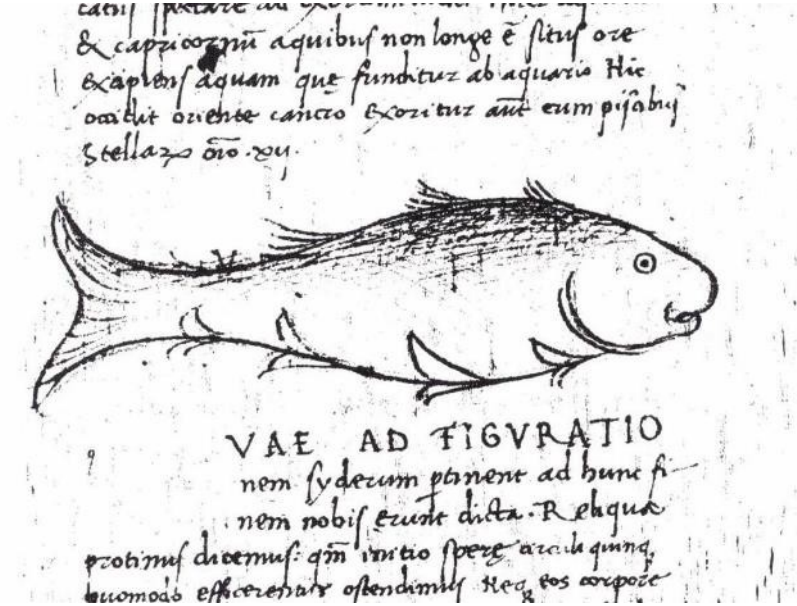 & capricornū aquibus non longe ē situs ore
excipiens aquam quę funditur ab aquario Hic
occidit oriente cancro Exoritur aūt cum piscibus
Stellarꝝ oīo .xij.
VAE AD FIGVRATIO
nem syderum ꝑtinent ad hunc fi-
nem nobis erunt dicta. Reliqua
protinus dicemus: qm̄ initio sperę circuli quinq
quomodo efficerentur ostendimus Neq eos corpore